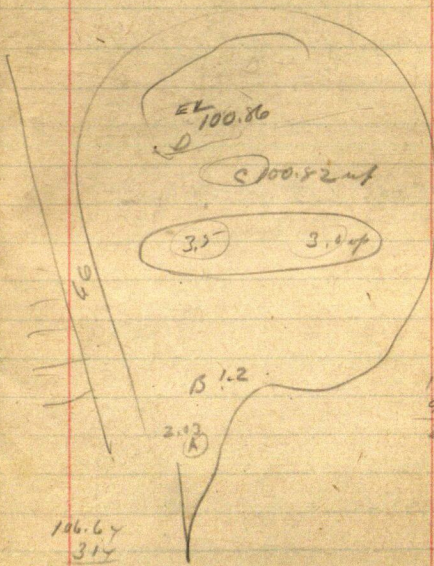 EL 100.86
D
C 100.82 up
3.5 3.0 up
66
B 1.2
2.03
A
106.67
3.17